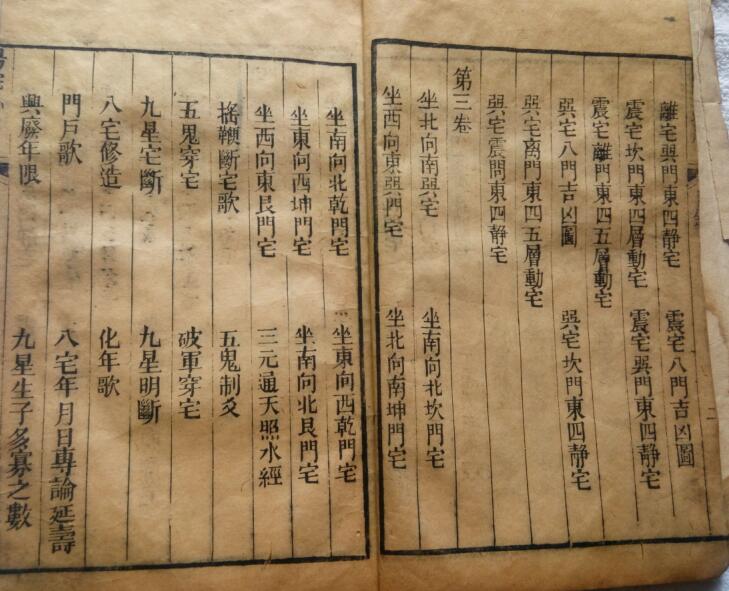 離宅巽門東四靜宅　震宅八門吉凶圖
震宅坎門東四層動宅　震宅巽門東四靜宅
震宅離門東四五層動宅
巽宅八門吉凶圖　巽宅坎門東四靜宅
巽宅离門東四五層動宅
巽宅震問東四静宅
第三卷
坐北向南巽宅　坐南向北坎門宅
坐西向東巽門宅　坐北向南坤門宅
坐南向北乾門宅　坐東向西乾門宅
坐東向西坤門宅　坐南向北艮門宅
坐西向東艮門宅　三元通天照水經
搖鞭斷宅歌　五鬼制爻
五鬼穿宅　破軍穿宅
九星宅斷　九星明斷
八宅修造　化年歌
門戶歌　八宅年月日專論延壽
興廢年限　九星生子多寡之數